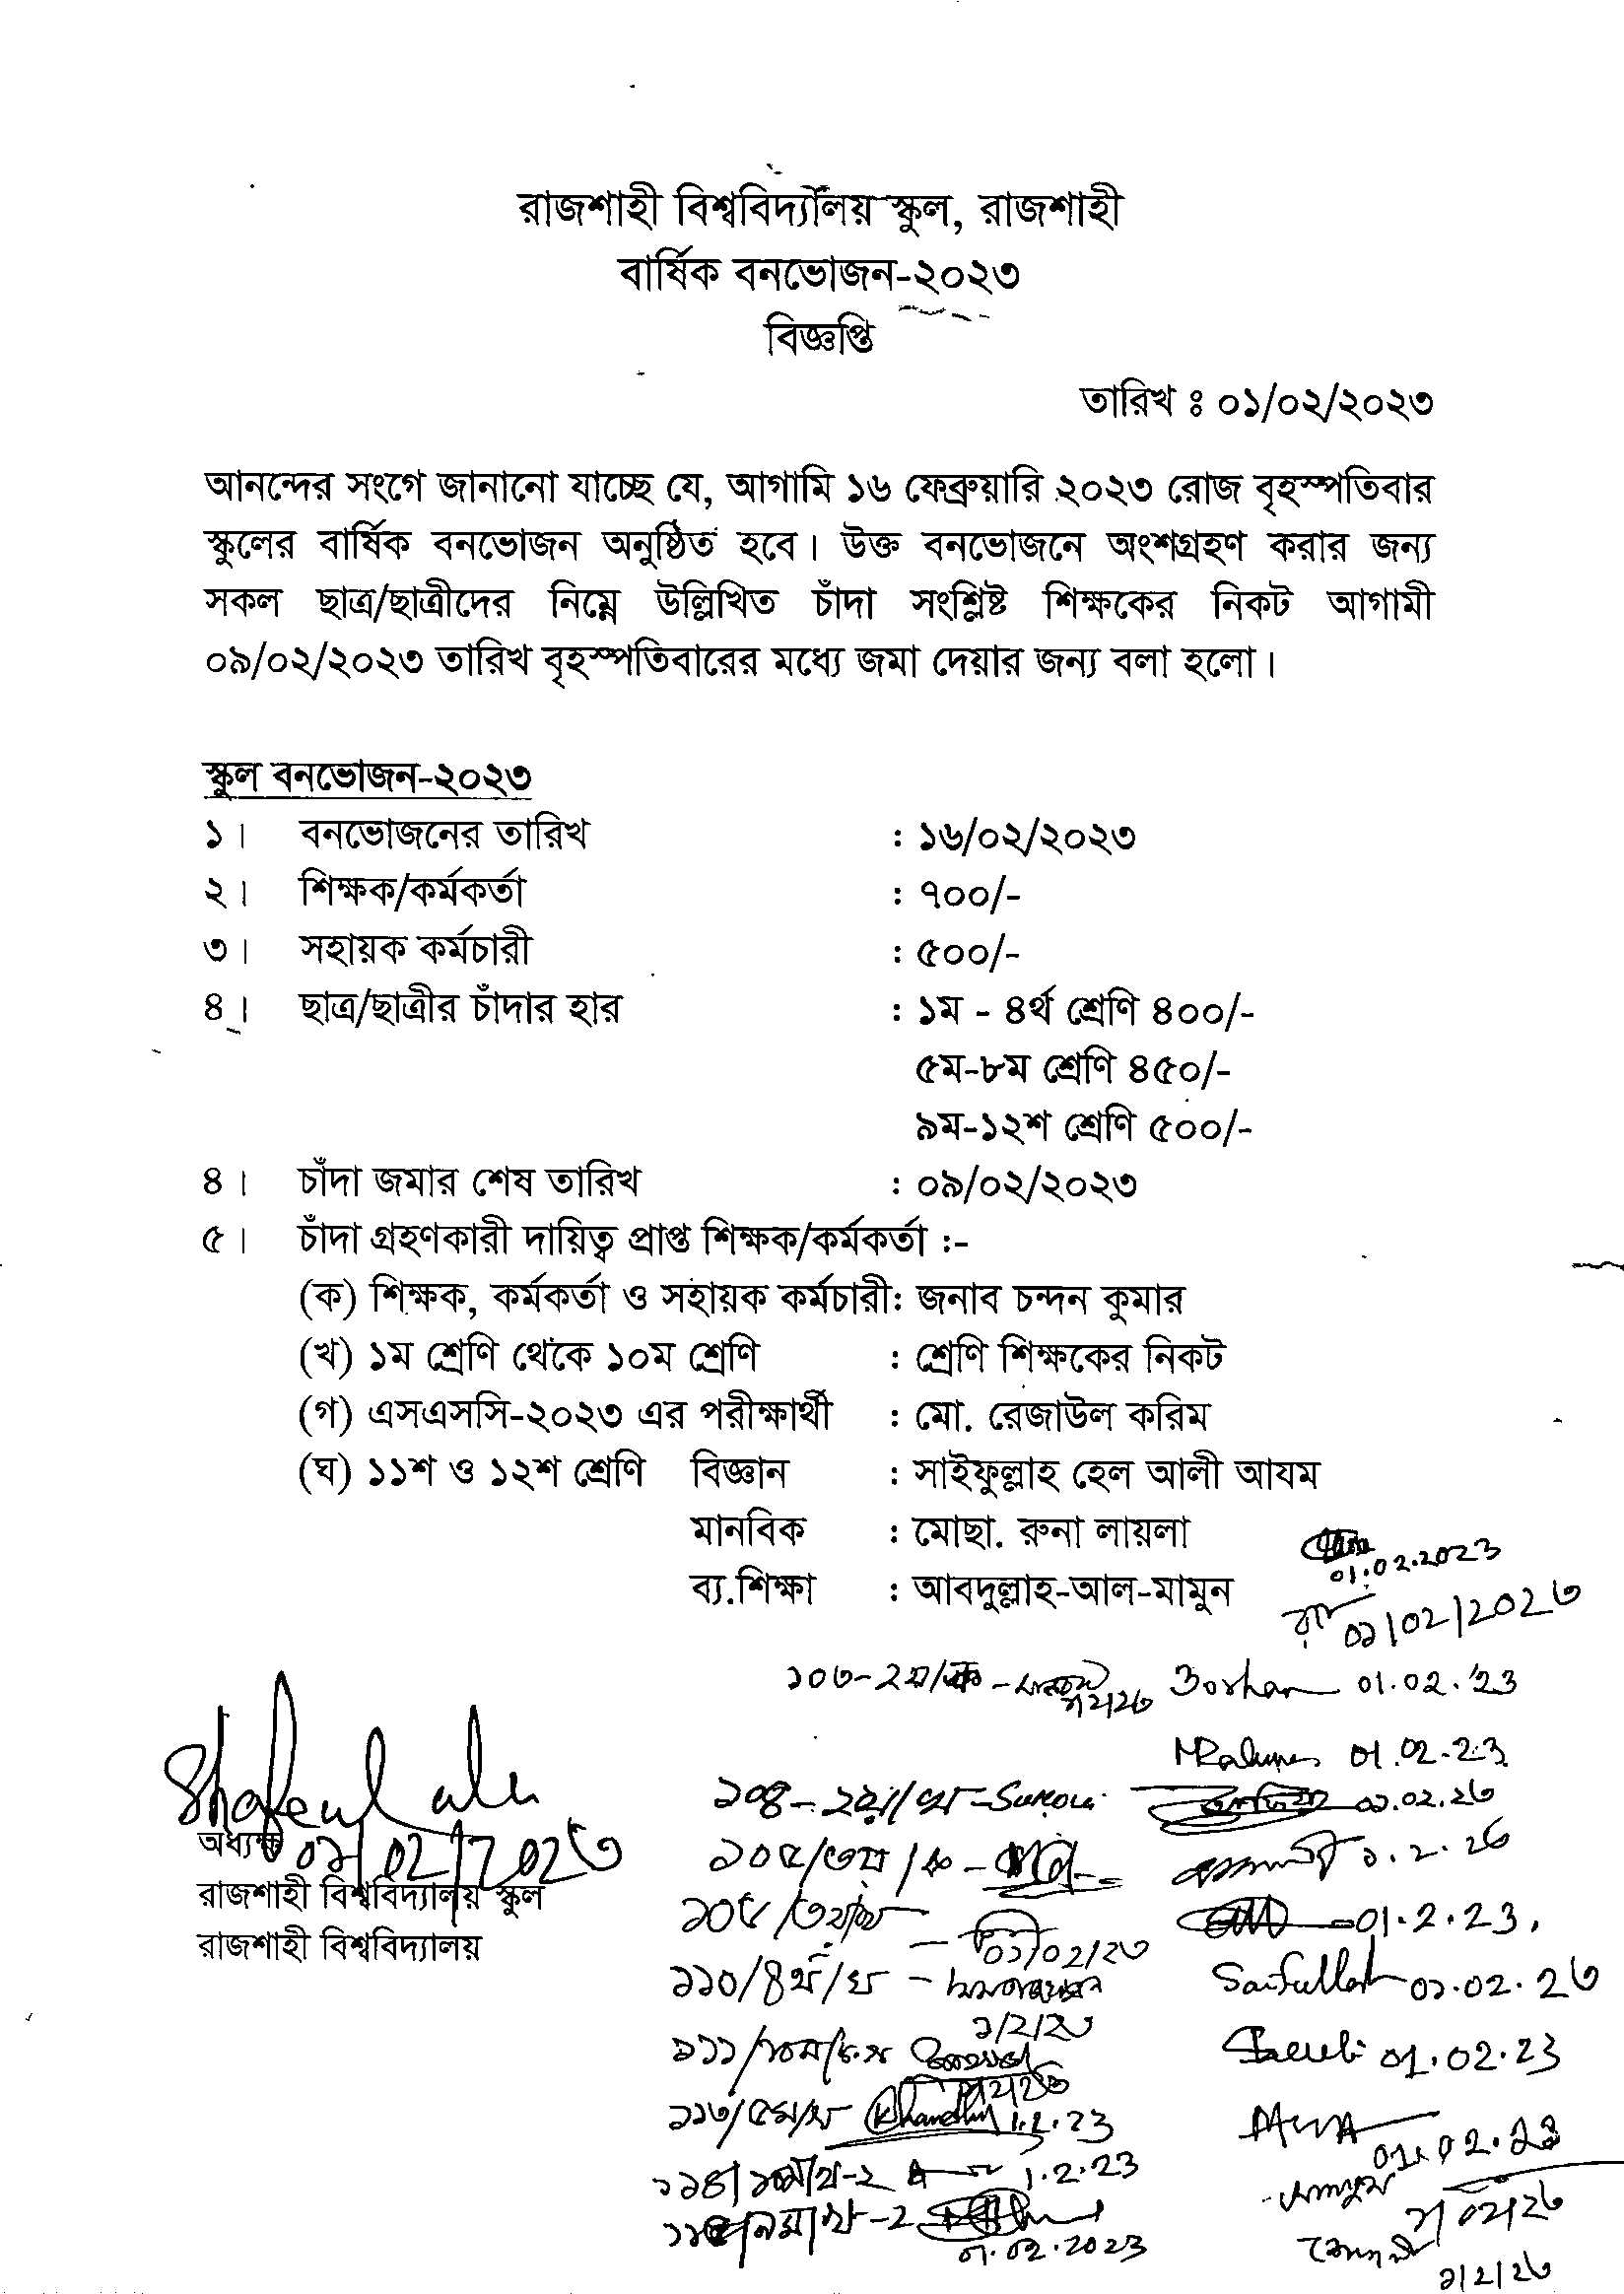 রাজশাহী বিশ্ববিদ্যালয় স্কুল, রাজশাহী
বার্ষিক বনভোজন-২০২৩
বিজ্ঞপ্তি
তারিখ ঃ ০১/০২/২০২৩
আনন্দের সংগে জানানো যাচ্ছে যে, আগামি ১৬ ফেব্রুয়ারি ২০২৩ রোজ বৃহস্পতিবার
স্কুলের বার্ষিক বনভোজন অনুষ্ঠিত হবে। উক্ত বনভোজনে অংশগ্রহণ করার জন্য
সকল ছাত্র/ছাত্রীদের নিম্নে উল্লিখিত চাঁদা সংশ্লিষ্ট শিক্ষকের নিকট আগামী
০৯/০২/২০২৩ তারিখ বৃহস্পতিবারের মধ্যে জমা দেয়ার জন্য বলা হলো।
স্কুল বনভোজন-২০২৩
১। বনভোজনের তারিখ : ১৬/০২/২০২৩
২। শিক্ষক/কর্মকর্তা : ৭০০/-
৩। সহায়ক কর্মচারী : ৫০০/-
৪। ছাত্র/ছাত্রীর চাঁদার হার : ১ম - ৪র্থ শ্রেণি ৪০০/-
৫ম-৮ম শ্রেণি ৪৫০/-
৯ম-১২শ শ্রেণি ৫০০/-
৪। চাঁদা জমার শেষ তারিখ : ০৯/০২/২০২৩
৫। চাঁদা গ্রহণকারী দায়িত্ব প্রাপ্ত শিক্ষক/কর্মকর্তা :-
(ক) শিক্ষক, কর্মকর্তা ও সহায়ক কর্মচারী: জনাব চন্দন কুমার
(খ) ১ম শ্রেণি থেকে ১০ম শ্রেণি : শ্রেণি শিক্ষকের নিকট
(গ) এসএসসি-২০২৩ এর পরীক্ষার্থী : মো. রেজাউল করিম
(ঘ) ১১শ ও ১২শ শ্রেণি বিজ্ঞান : সাইফুল্লাহ হেল আলী আযম
মানবিক : মোছা. রুনা লায়লা
ব্য.শিক্ষা : আবদুল্লাহ-আল-মামুন
01.02.2023
০১/০২/২০২৩
01.02.'23
01.02.23
০১.০২.২৩
১.২.২৩
01.2.23
০১/০২/২৩
Saifullah ০১.০২.২৩
১/২/২৩
01.02.23
1.2.23
01.02.23
1.2.23
01.02.2023
১/২/২৩
০১/০২/২০২৩
অধ্যক্ষ
রাজশাহী বিশ্ববিদ্যালয় স্কুল
রাজশাহী বিশ্ববিদ্যালয়